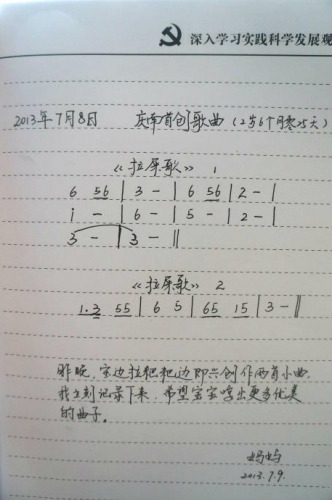 深入学习实践科学发展观
2013年7月8日 庆南首创歌曲(2岁6个月零25天)
《拉屎歌》 1
6 56 | 3 - | 6 56 | 2 - |
i - | 6 - | 5 - | 2 - |
3 - | 3 - ||
《拉屎歌》 2
1.3 55 | 6 5 | 65 15 | 3 - ||
昨晚,宝边拉粑粑边即兴创作两首小曲,
我立刻记录下来,希望宝宝唱出更多优美
的曲子。
妈妈
2013.7.9.